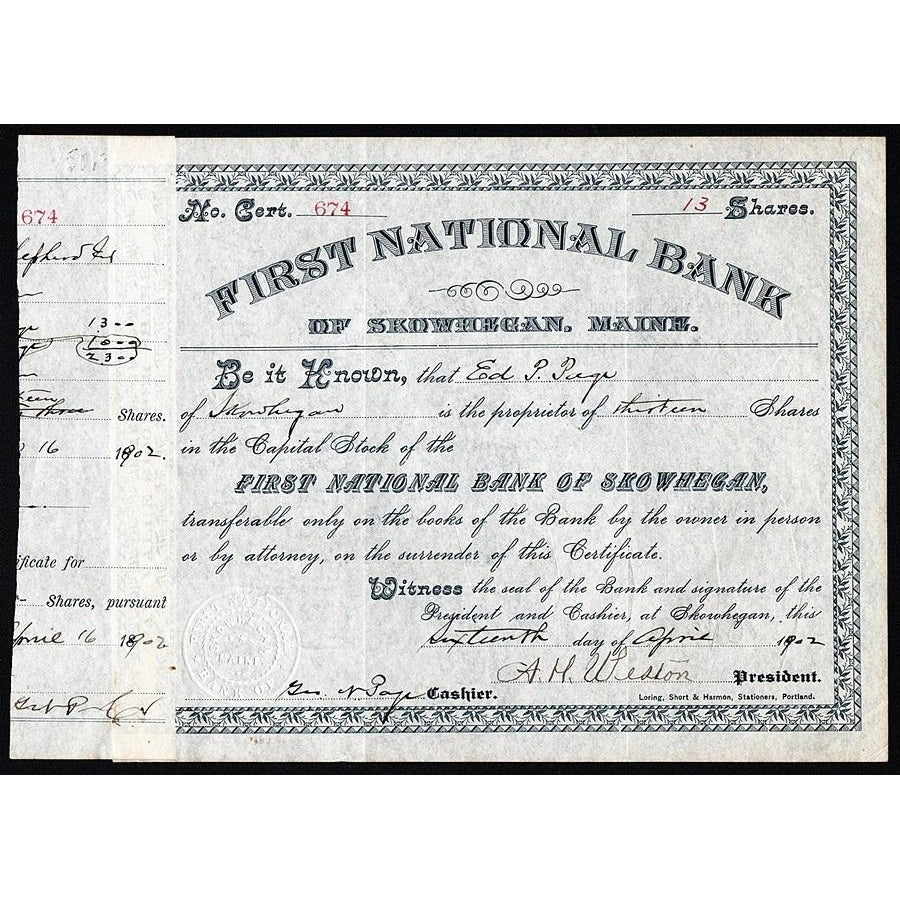 674
1300
1000
2300
Shares.
16 1902.
ificate for
Shares, pursuant
April 16 1902
No. Cert. 674 13 Shares.
FIRST NATIONAL BANK
OF SKOWHEGAN, MAINE.
Be it Known, that Ed P. Page
of Skowhegan is the proprietor of thirteen Shares
in the Capital Stock of the
FIRST NATIONAL BANK OF SKOWHEGAN,
transferable only on the books of the Bank by the owner in person
or by attorney, on the surrender of this Certificate.
Witness the seal of the Bank and signature of the
President and Cashier, at Skowhegan, this
sixteenth day of April 1902
A. H. Weston President.
Geo N. Page Cashier.
Loring, Short & Harmon, Stationers, Portland.